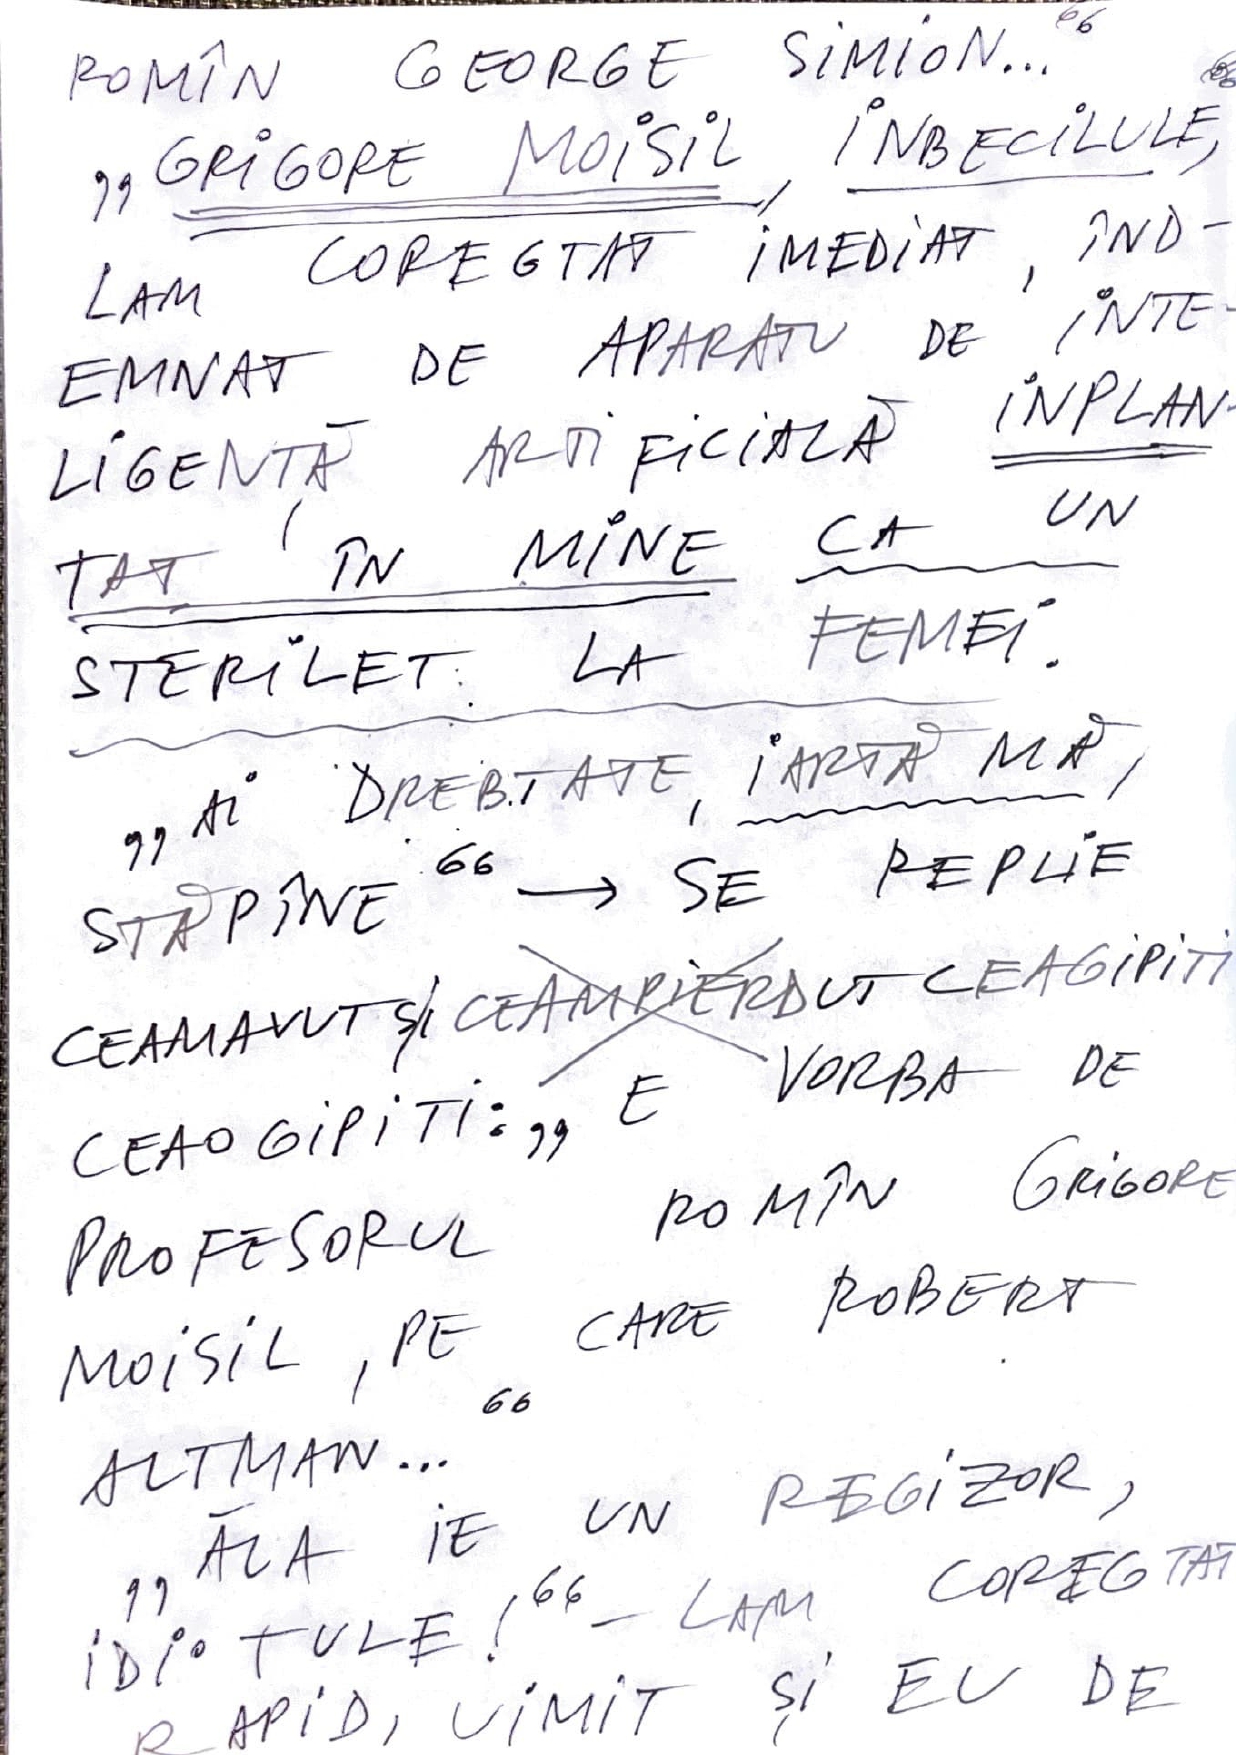 ROMÎN GEORGE SIMION..."
„GRIGORE MOISIL, INBECILULE,"
LAM COREGTAT IMEDIAT, ÎND-
EMNAT DE APARATU DE INTE-
LIGENȚĂ ARTIFICIALĂ INPLAN-
TAT ÎN MINE CA UN
STERILET LA FEMEI.
„AI DREBTATE, IARTĂ MĂ,
STĂPÎNE" → SE REPLIE
CEAMAVUT ȘI CEAMPIERDUT CEAGIPITI
CEAOGIPITI: „E VORBA DE
PROFESORUL ROMÎN GRIGORE
MOISIL, PE CARE ROBERT
ALTMAN..."
„ĂLA IE UN REGIZOR,
IDIOTULE!" – LAM COREGTAT
RAPID, UIMIT ȘI EU DE